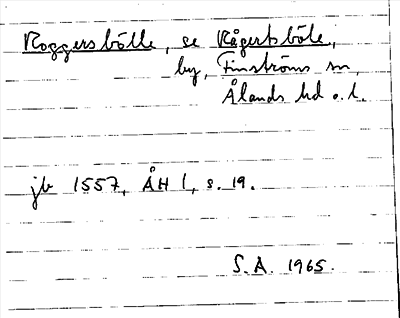 Roggersbölle, se Rågertsböle,
by, Finströms sn,
Ålands hd o. l.
jb 1557, ÅH 1, s. 19.
S.A. 1965.